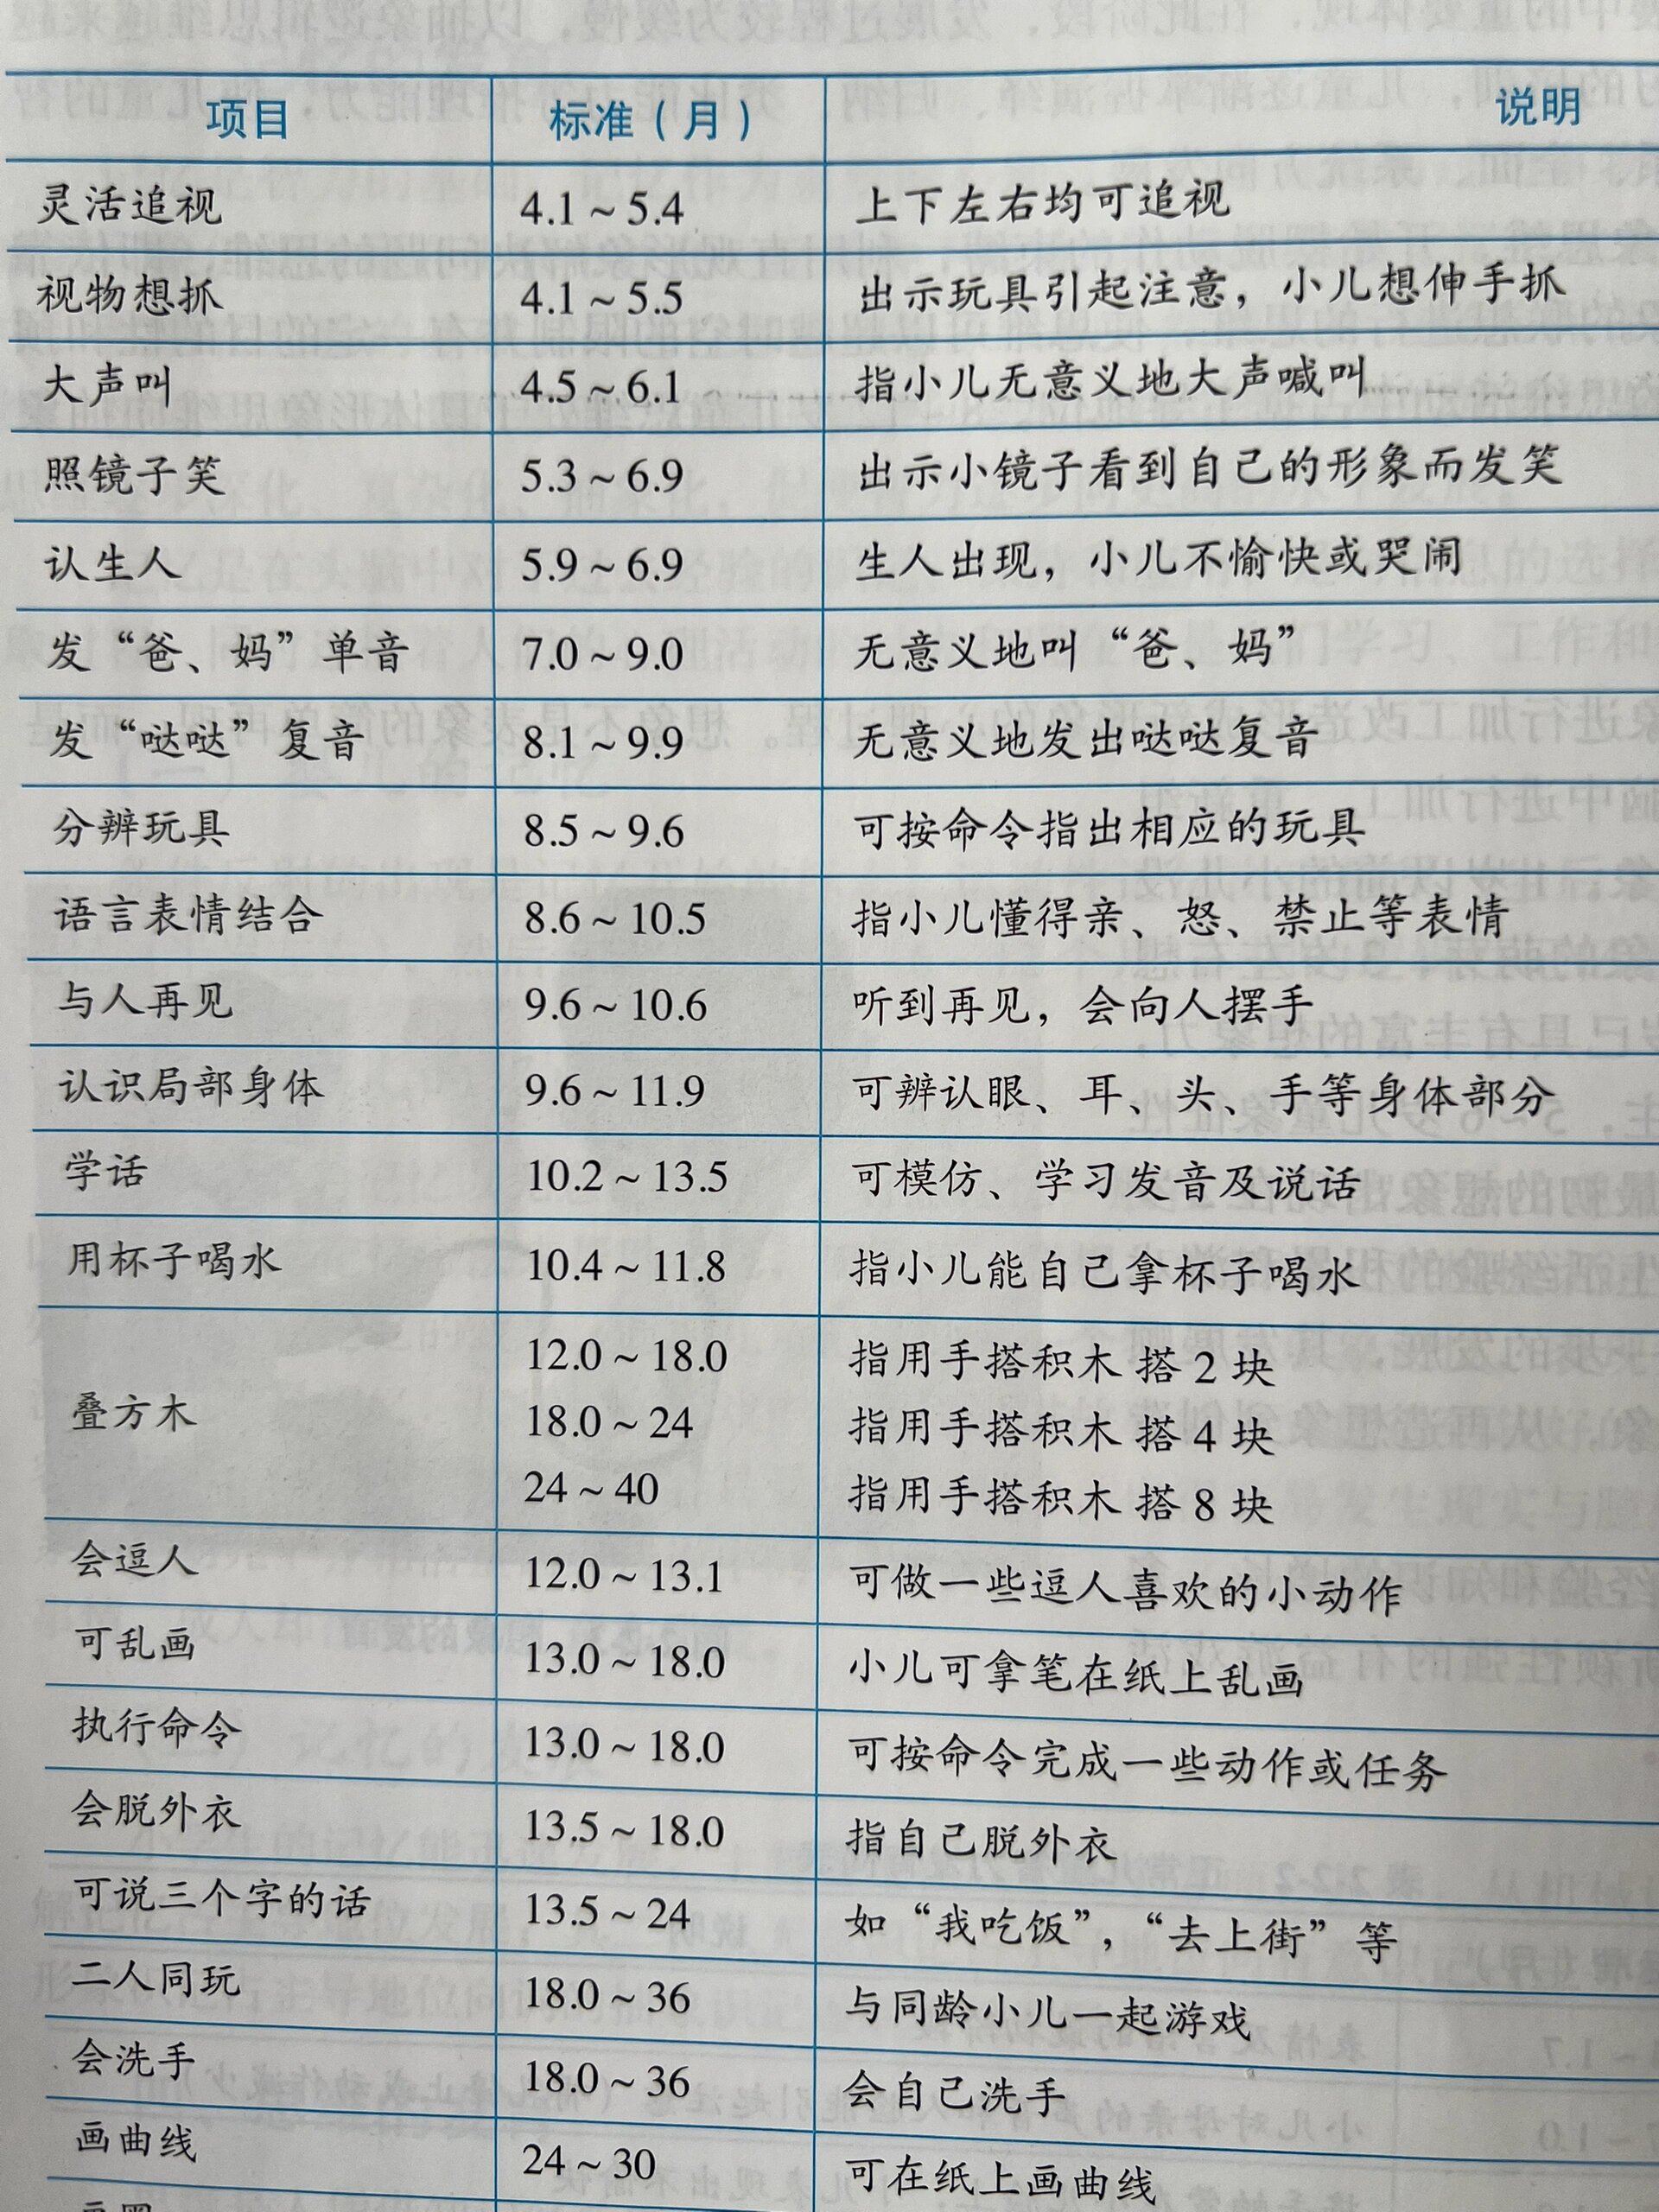 项目 标准（月） 说明
灵活追视 4.1～5.4 上下左右均可追视
视物想抓 4.1～5.5 出示玩具引起注意，小儿想伸手抓
大声叫 4.5～6.1 指小儿无意义地大声喊叫
照镜子笑 5.3～6.9 出示小镜子看到自己的形象而发笑
认生人 5.9～6.9 生人出现，小儿不愉快或哭闹
发“爸、妈”单音 7.0～9.0 无意义地叫“爸、妈”
发“哒哒”复音 8.1～9.9 无意义地发出哒哒复音
分辨玩具 8.5～9.6 可按命令指出相应的玩具
语言表情结合 8.6～10.5 指小儿懂得亲、怒、禁止等表情
与人再见 9.6～10.6 听到再见，会向人摆手
认识局部身体 9.6～11.9 可辨认眼、耳、头、手等身体部分
学话 10.2～13.5 可模仿、学习发音及说话
用杯子喝水 10.4～11.8 指小儿能自己拿杯子喝水
12.0～18.0 指用手搭积木 搭 2 块
叠方木 18.0～24 指用手搭积木 搭 4 块
24～40 指用手搭积木 搭 8 块
会逗人 12.0～13.1 可做一些逗人喜欢的小动作
可乱画 13.0～18.0 小儿可拿笔在纸上乱画
执行命令 13.0～18.0 可按命令完成一些动作或任务
会脱外衣 13.5～18.0 指自己脱外衣
可说三个字的话 13.5～24 如“我吃饭”，“去上街”等
二人同玩 18.0～36 与同龄小儿一起游戏
会洗手 18.0～36 会自己洗手
画曲线 24～30 可在纸上画曲线